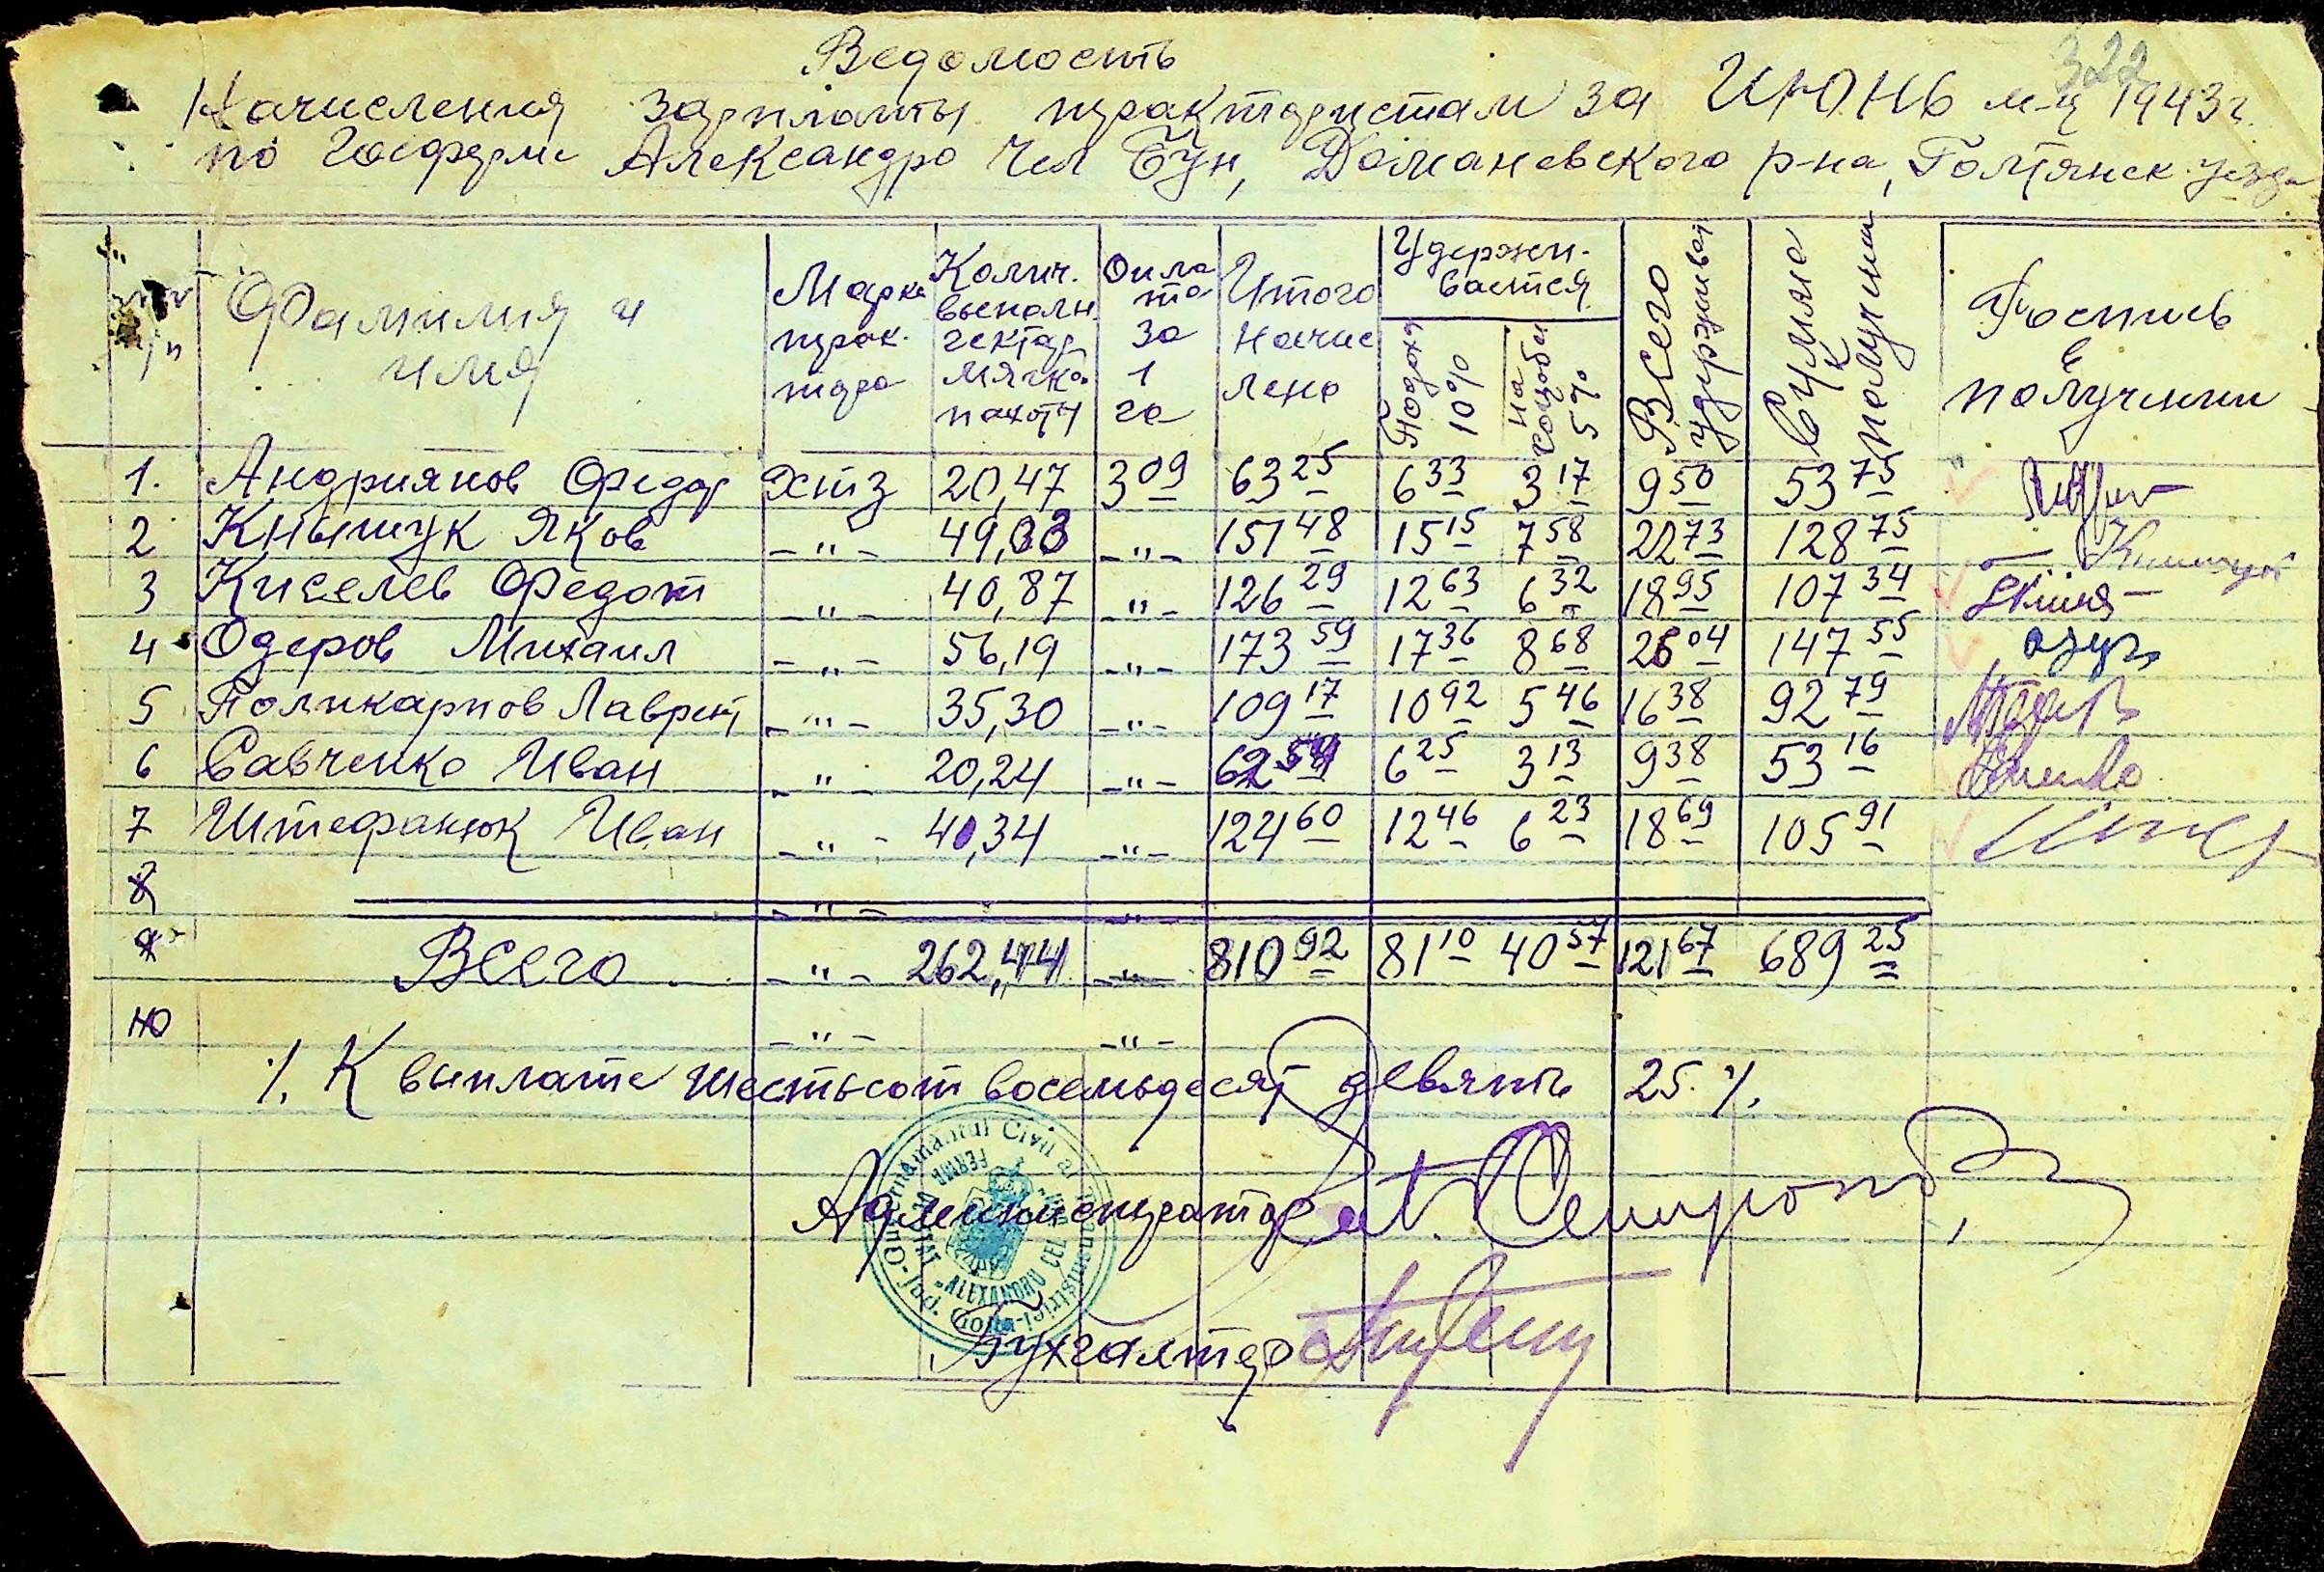 322
Ведомость
Начисления зарплаты трактористам за ИЮНЬ м-ц 1943г.
по Госферме Александро Чел Бун, Доманевского р-на, Голтянск. уезда
Фамилия и имя | Марка трактора | Колич. выполн. гектар мягкой пахоты | Оплата за 1 га | Итого начислено | Удерживается | Подоход 10% | на соцобес 5% | Всего удерживает | Сумма к получению | Роспись в получении
1. Андриянов Федор ХТЗ 20,47 3 09 63 25 6 33 3 17 9 50 53 75
2 Кнышук Яков -"- 49,03 -"- 151 48 15 15 7 58 22 73 128 75
3 Киселев Федот -"- 40,87 "- 126 29 12 63 6 32 18 95 107 34
4 Одеров Михаил -"- 56,19 -"- 173 59 17 36 8 68 26 04 147 55
5 Поликарпов Лаврент -"- 35,30 -"- 109 17 10 92 5 46 16 38 92 79
6 Савченко Иван -"- 20,24 -"- 62 54 6 25 3 13 9 38 53 16
7 Штефанюк Иван -"- 40,34 -"- 124 60 12 46 6 23 18 69 105 91
8 -"- -"-
9 Всего -"- 262,44 -"- 810 92 81 10 40 57 121 67 689 25
10 -"- -"-
٪. К выплате шестьсот восемьдесят девять 25 ٪.
Администратор
FERMA
ALEXANDRU CEL
Бухгалтер